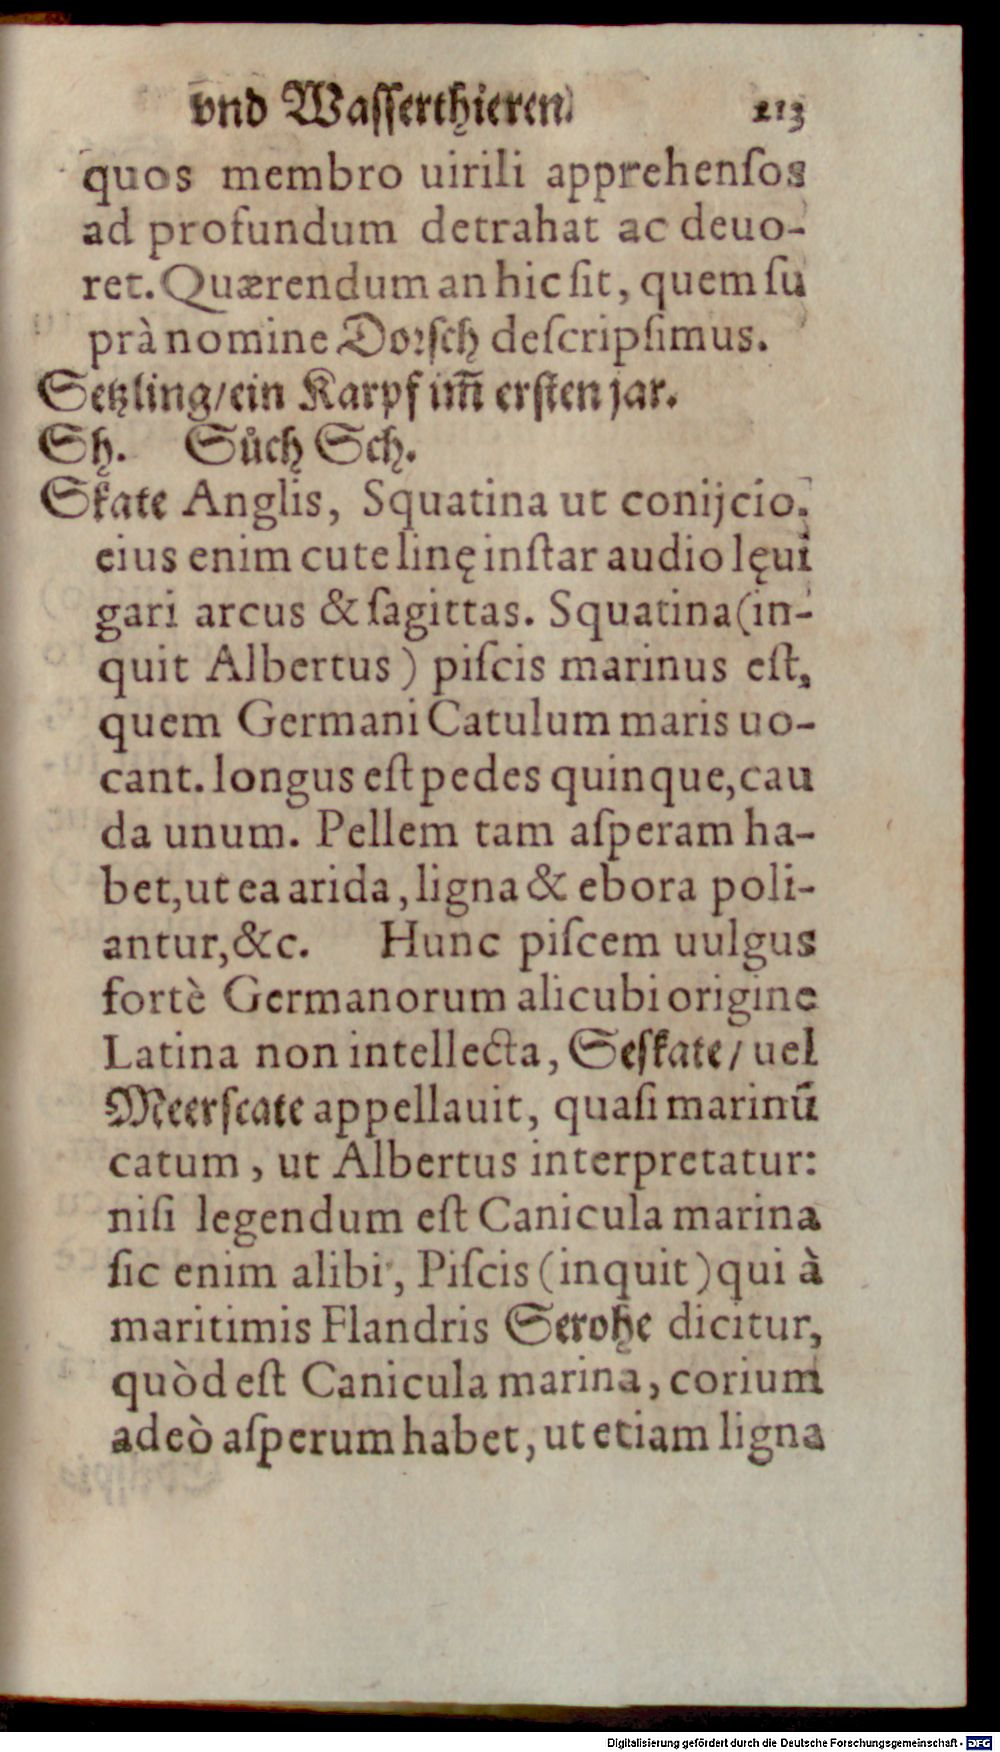 vnd Wasserthieren. 213
quos membro uirili apprehenſos
ad profundum detrahat ac deuo-
ret. Quærendum an hic ſit, quem ſu
prà nomine Dorſch deſcripſimus.
Setzling/ein Karpf im̄ erſten jar.
Sh. Sůch Sch.
Skate Anglis, Squatina ut conijcio.
eius enim cute linę inſtar audio lęui
gari arcus & ſagittas. Squatina (in-
quit Albertus) piſcis marinus eſt,
quem Germani Catulum maris uo-
cant. longus eſt pedes quinque, cau
da unum. Pellem tam aſperam ha-
bet, ut ea arida, ligna & ebora poli-
antur, &c. Hunc piſcem uulgus
fortè Germanorum alicubi origine
Latina non intellecta, Seſkate/ uel
Meerſcate appellauit, quaſi marinū
catum, ut Albertus interpretatur:
niſi legendum eſt Canicula marina
ſic enim alibi, Piſcis (inquit) qui à
maritimis Flandris Serohe dicitur,
quòd eſt Canicula marina, corium
adeò aſperum habet, ut etiam ligna
Digitalisierung gefördert durch die Deutsche Forschungsgemeinschaft - DFG